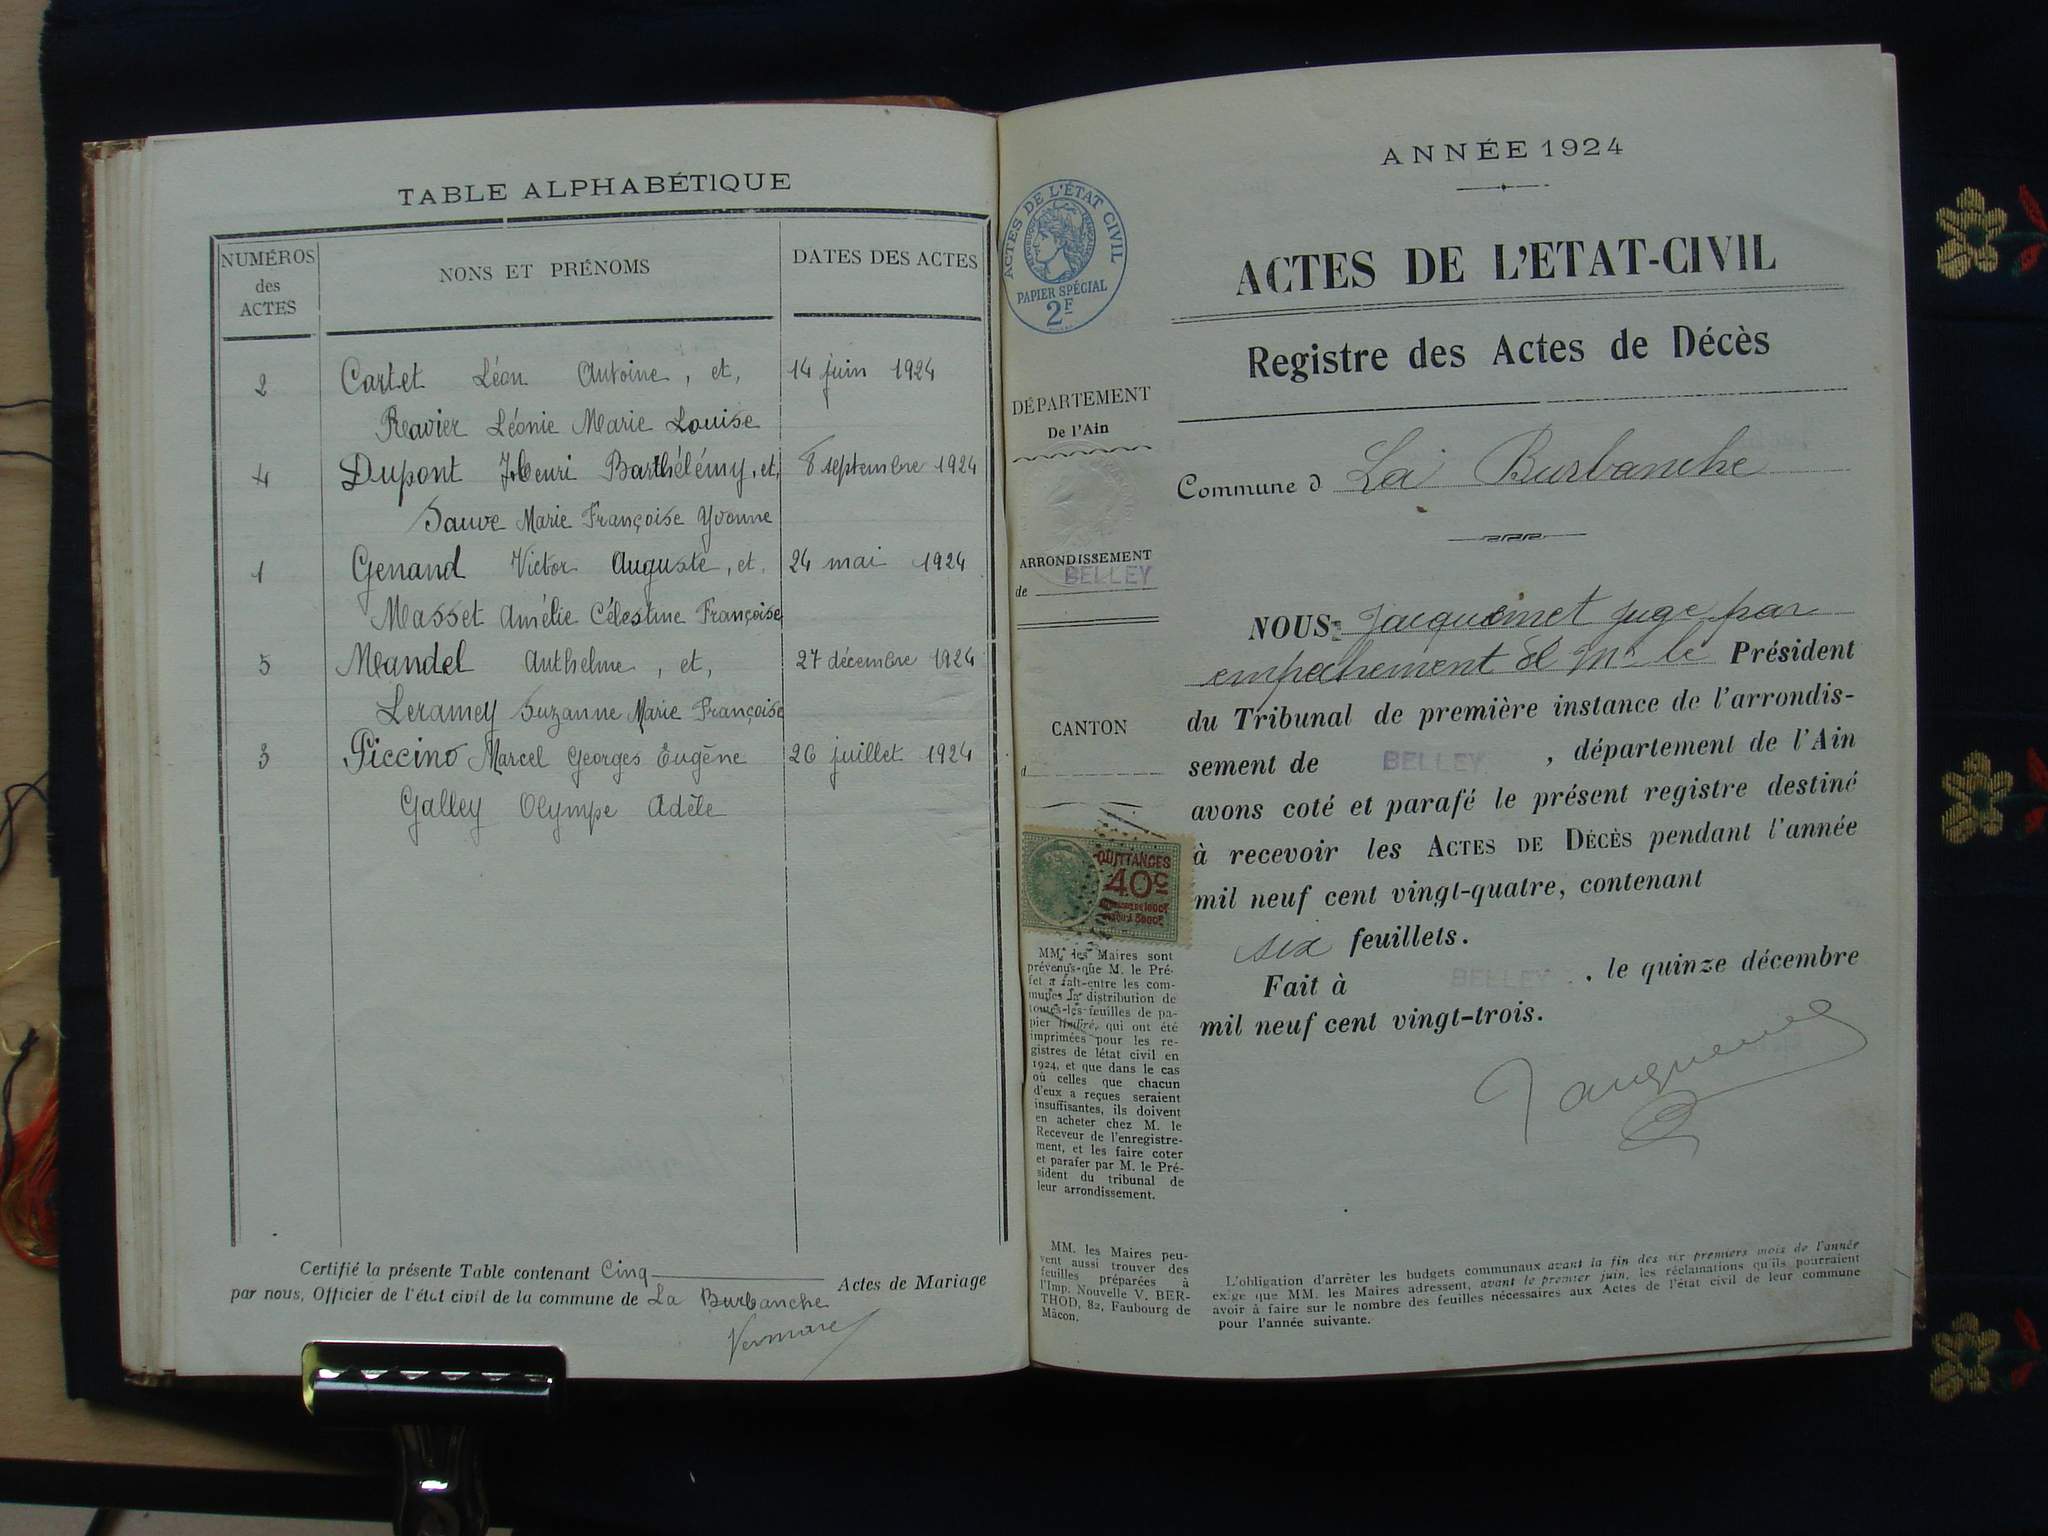 TABLE ALPHABÉTIQUE
NUMÉROS
des
ACTES
NONS ET PRÉNOMS
DATES DES ACTES
2 Cartet Léon Antoine, et, 14 juin 1924
Ravier Léonie Marie Louise
4 Dupont Henri Barthélémy, et, 8 septembre 1924
Sauve Marie Françoise Yvonne
1 Genand Victor Auguste, et, 24 mai 1924
Masset Amélie Célestine Françoise
5 Mandel Anthelme, et, 27 décembre 1924
Leramey Suzanne Marie Françoise
3 Piccino Marcel Georges Eugène 26 juillet 1924
Galley Olympe Adèle
Certifié la présente Table contenant Cinq Actes de Mariage
par nous, Officier de l'état civil de la commune de La Burbanche
Vermare
ACTES DE L'ÉTAT CIVIL
PAPIER SPÉCIAL
2F
DÉPARTEMENT
De l'Ain
ARRONDISSEMENT
de BELLEY
CANTON
d
QUITTANCES
40c
MM. les Maires sont
prévenus que M. le Pré-
fet a fait entre les com-
munes la distribution de
toutes les feuilles de pa-
pier timbré, qui ont été
imprimées pour les re-
gistres de létat civil en
1924, et que dans le cas
où celles que chacun
d'eux a reçues seraient
insuffisantes, ils doivent
en acheter chez M. le
Receveur de l'enregistre-
ment, et les faire coter
et parafer par M. le Pré-
sident du tribunal de
leur arrondissement.
MM. les Maires peu-
vent aussi trouver des
feuilles préparées à
l'Imp. Nouvelle V. BER-
THOD, 82, Faubourg de
Mâcon.
ANNÉE 1924
ACTES DE L'ETAT-CIVIL
Registre des Actes de Décès
Commune d La Burbanche
NOUS, Jacquemet juge par
empechement de Mr le Président
du Tribunal de première instance de l'arrondis-
sement de BELLEY, département de l'Ain
avons coté et parafé le présent registre destiné
à recevoir les ACTES DE DÉCÈS pendant l'année
mil neuf cent vingt-quatre, contenant
six feuillets.
Fait à BELLEY, le quinze décembre
mil neuf cent vingt-trois.
Jacquemet
L'obligation d'arrêter les budgets communaux avant la fin des six premiers mois de l'année
exige que MM. les Maires adressent, avant le premier juin, les réclamations qu'ils pourraient
avoir à faire sur le nombre des feuilles nécessaires aux Actes de l'état civil de leur commune
pour l'année suivante.